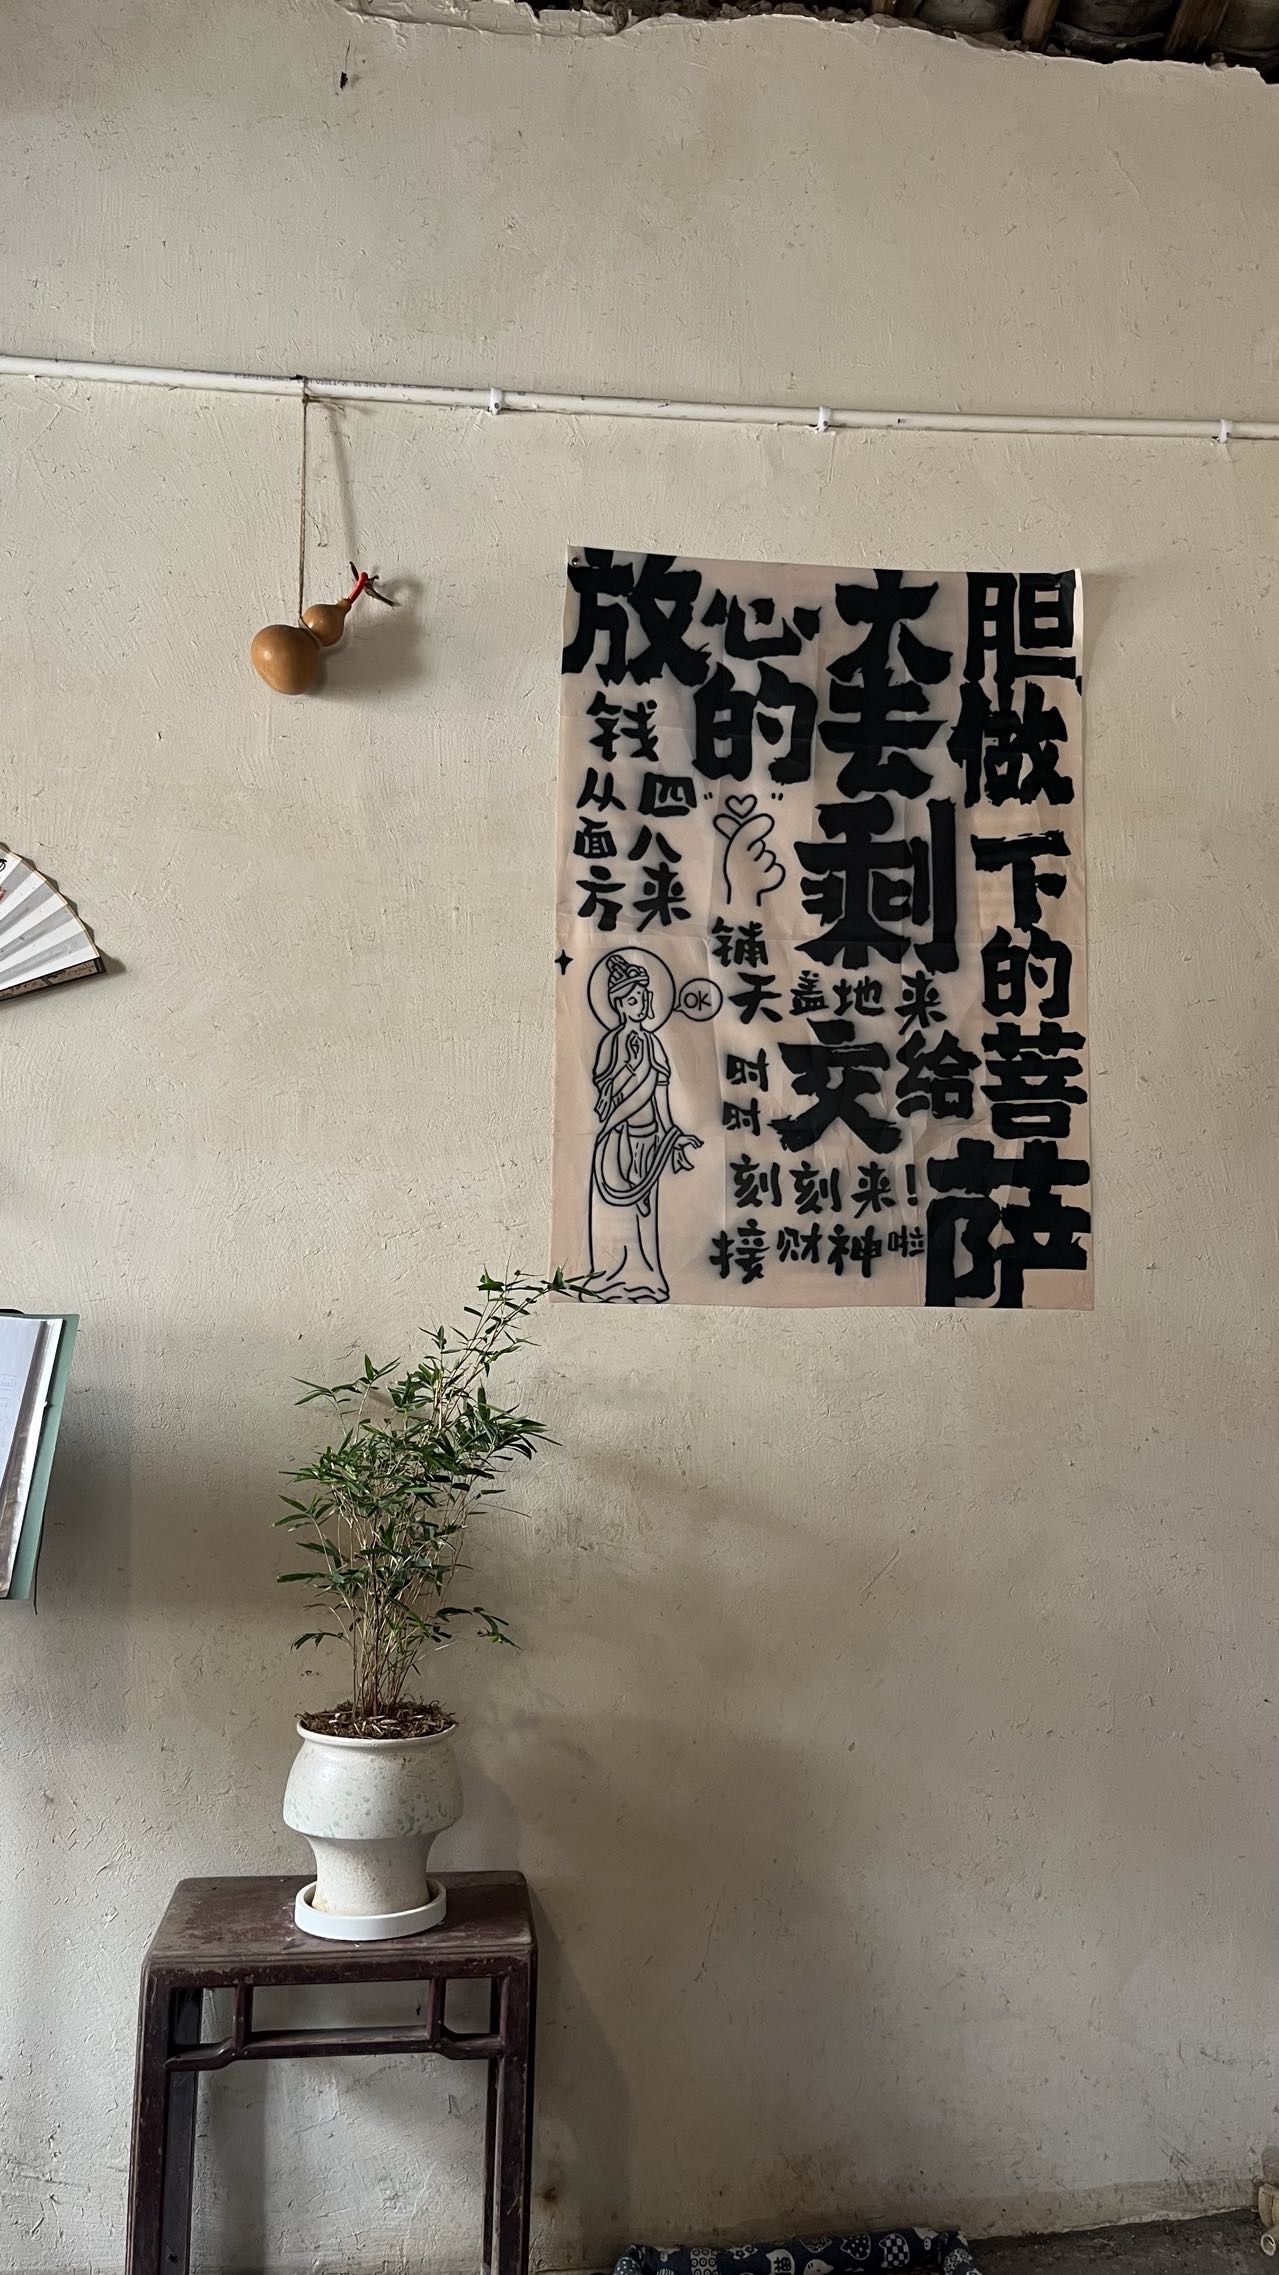 放心的
大胆
去做
剩下的
交给菩萨
钱
从四
面八
方来
OK
铺
天盖地来
时
时
刻刻来!
接财神啦